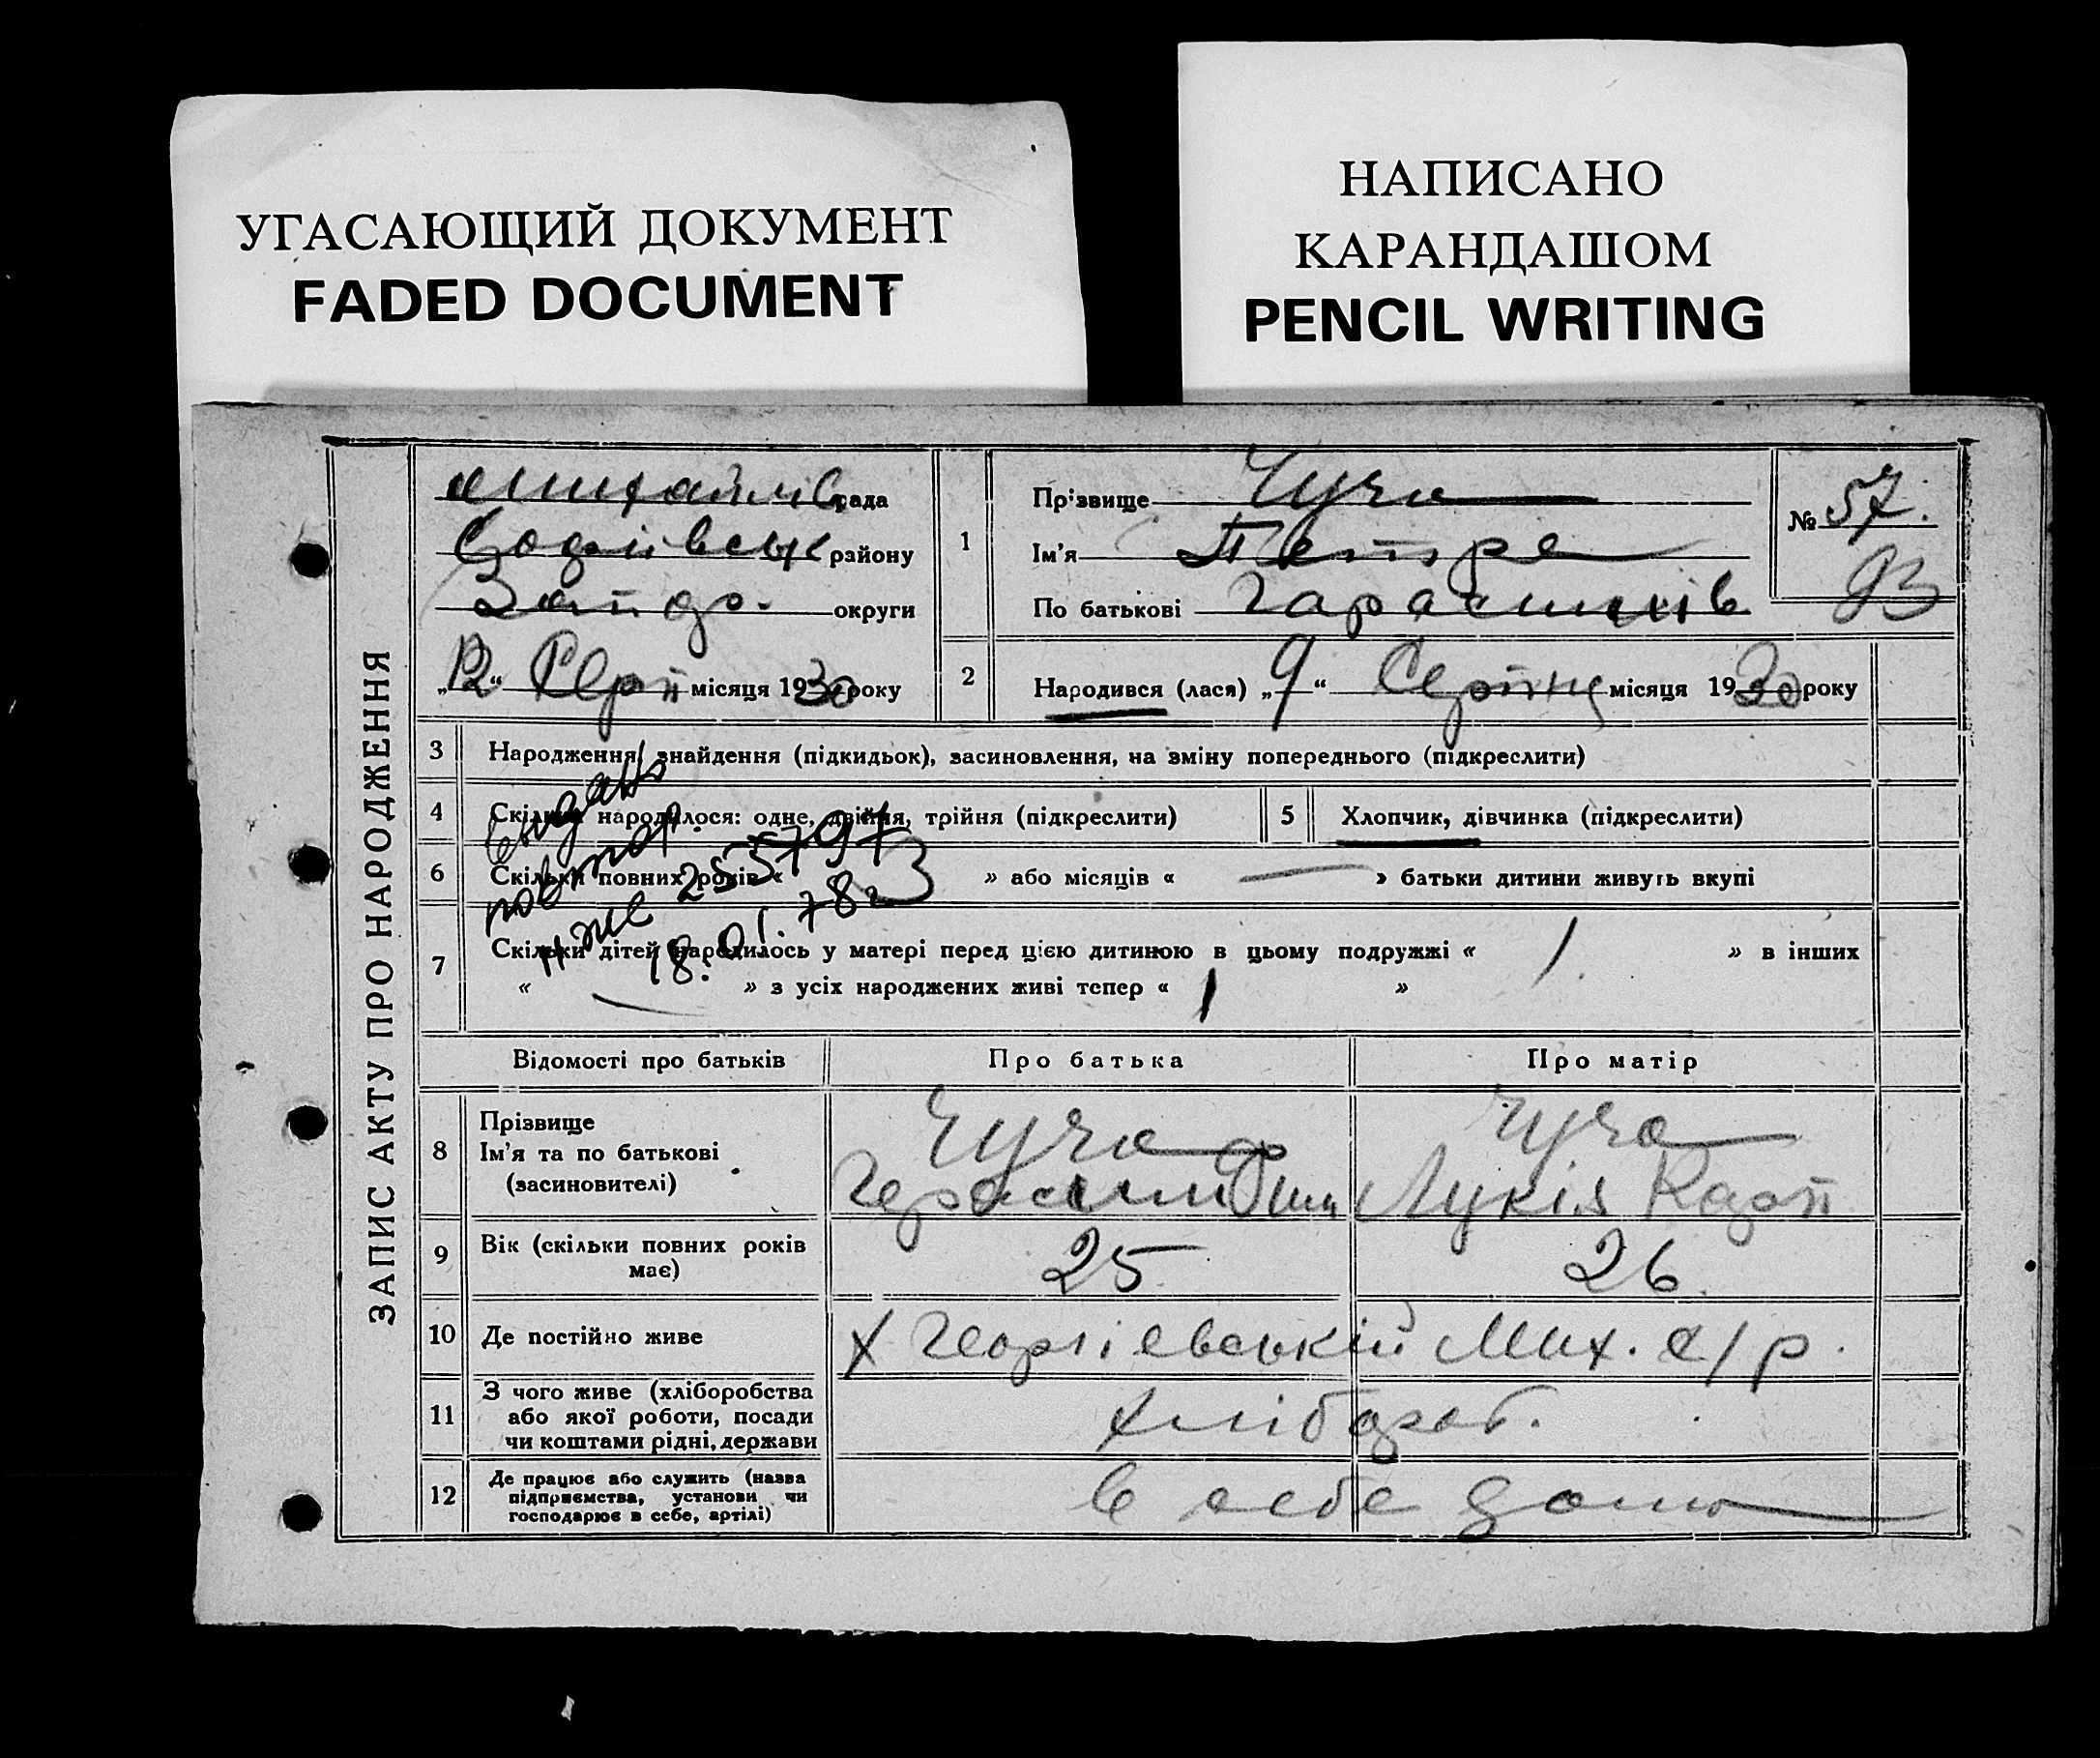 УГАСАЮЩИЙ ДОКУМЕНТ
FADED DOCUMENT
НАПИСАНО
КАРАНДАШОМ
PENCIL WRITING
ЗАПИС АКТУ ПРО НАРОДЖЕННЯ
Михайлів рада
Софіївськ району
Запор. округи
„12“ Серп місяця 1930 року
1
Прізвище Чуча
Ім'я Петро
По батькові Гарасимів
№ 57.
93
2 Народився (лася) „9“ Серпня місяця 1930 року
3 Народження, знайдення (підкидьок), засиновлення, на зміну попереднього (підкреслити)
4 Скільки народилося: одне, двійня, трійня (підкреслити)
5 Хлопчик, дівчинка (підкреслити)
6 Скільки повних років « » або місяців « — » батьки дитини живуть вкупі
7 Скільки дітей народилось у матері перед цією дитиною в цьому подружжі « 1. » в інших
« — » з усіх народжених живі тепер « 1 »
видано
повтор.
255797
18.01.78г
Відомості про батьків Про батька Про матір
8 Прізвище
Ім'я та по батькові
(засиновителі)
Чуча
Герасим
Чуча
Лукія Карп
9 Вік (скільки повних років
має)
25 26.
10 Де постійно живе х Георгіевській Мих. с/р.
11 З чого живе (хліборобства
або якої роботи, посади
чи коштами рідні, держави
хлібороб.
12 Де працює або служить (назва
підприємства, установи чи
господарює в себе, артілі)
в себе дома